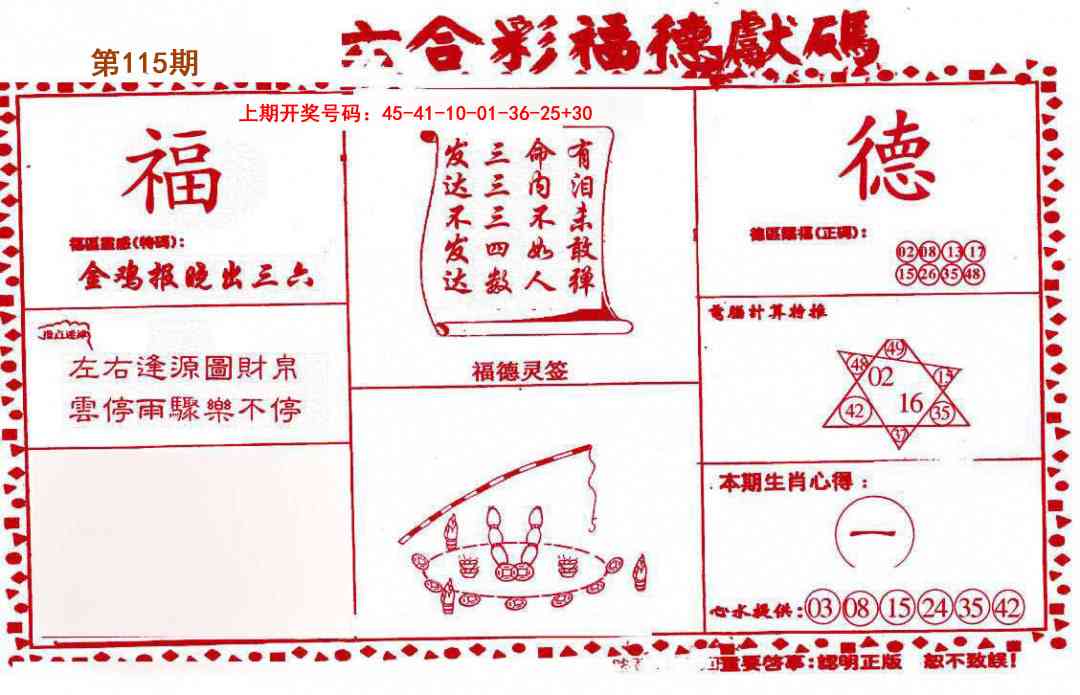 六合彩福德獻碼
第115期
上期开奖号码：45-41-10-01-36-25+30
福
福區靈感(特碼)：
金鸡报晓出三六
左右逢源圖財帛
雲停雨驟樂不停
有泪未敢弹
命内不如人
三三三四数
发达不发达
福德灵签
德
德區賜福(正碼)：
02 08 13 17
15 26 35 48
電腦計算特推
49
48
15
02
16
42
35
37
本期生肖心得：
一
心水提供：03 08 15 24 35 42
重要啓事：認明正版 恕不致誤！